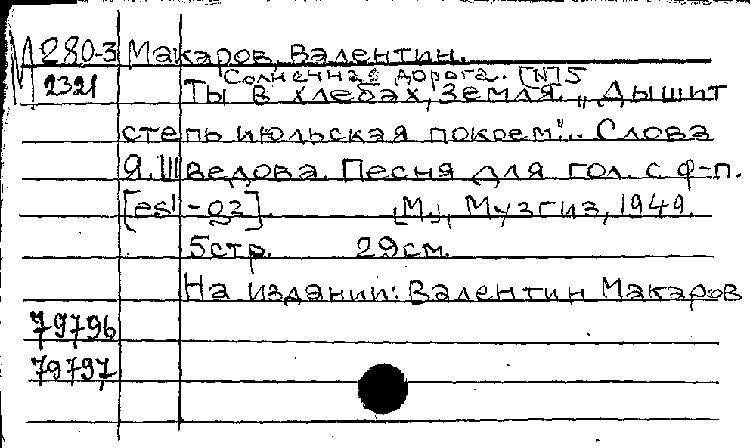 М 280-3 Макаров, Валентин.
2321 Солнечная дорога. [№]5
Ты в хлебах, Земля. „Дышит
степь июльская покоем“.. Слова
Я. Шведова. Песня для гол. с ф-п.
[es¹-g²]. [М.], Музгиз, 1949.
5стр. 29см.
На издании: Валентин Макаров
79796
79797